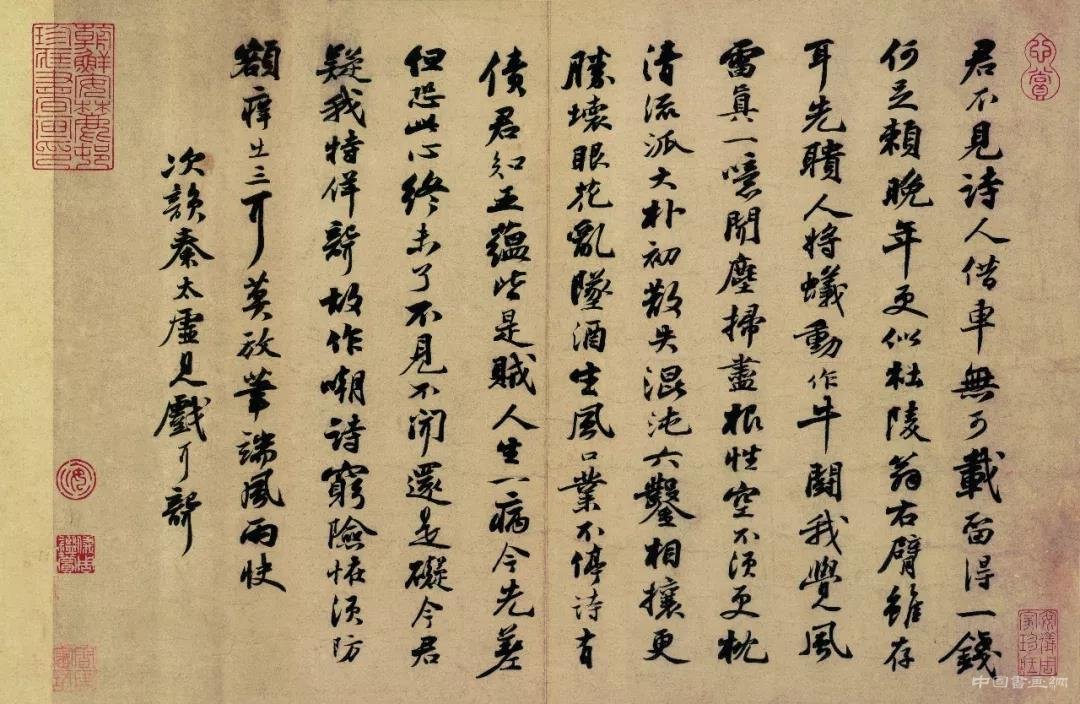 心賞
君不見詩人借車無可載留得一錢
何足賴晚年更似杜陵翁右臂雖存
耳先聵人將蟻動作牛鬭我覺風
雷真一噫聞塵掃盡根性空不須更枕
清流派大朴初散失混沌六鑿相攘更
勝壞眼花亂墜酒生風口業不停詩有
債君知五蘊皆是賊人生一病今先差
但恐此心終未了不見不聞還是礙今君
疑我特佯聾故作嘲詩窮險怪須防
額癢出三耳莫放筆端風雨快
次韻秦太虛見戲耳聾
朝鮮安麓邨
珍藏書畫印
安儀周
家珍藏
中国書画網